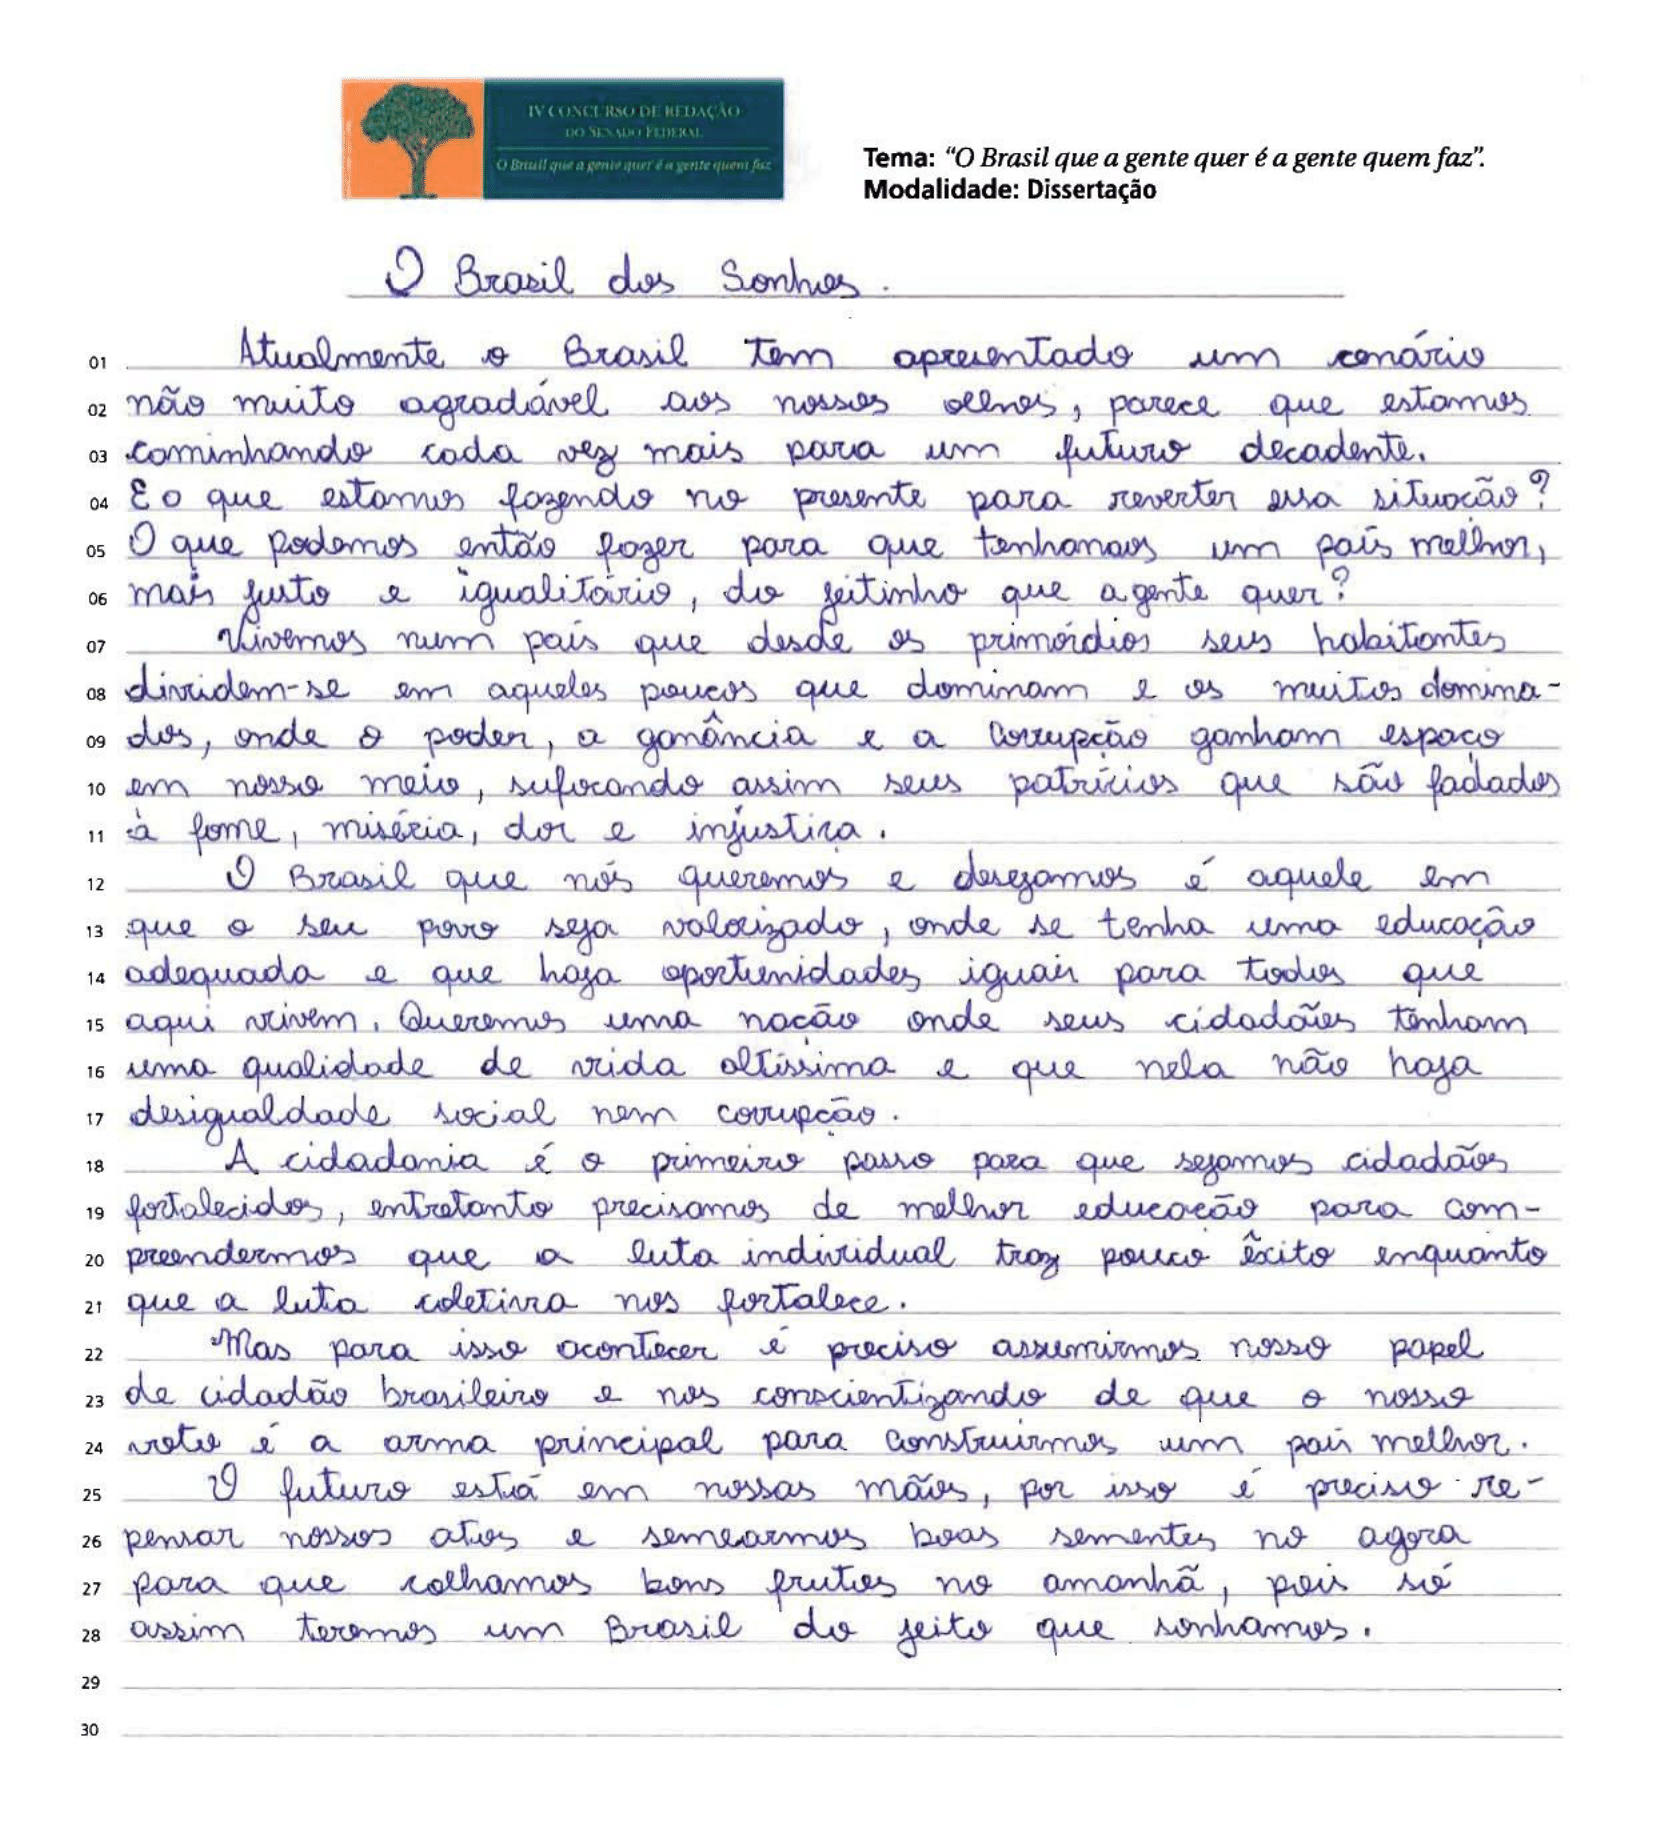 IV CONCURSO DE REDAÇÃO
DO SENADO FEDERAL
O Brasil que a gente quer é a gente quem faz
Tema: “O Brasil que a gente quer é a gente quem faz”.
Modalidade: Dissertação
O Brasil dos Sonhos.
01 Atualmente o Brasil tem apresentado um cenário
02 não muito agradável aos nossos olhos, parece que estamos
03 caminhando cada vez mais para um futuro decadente.
04 E o que estamos fazendo no presente para reverter essa situação?
05 O que podemos então fazer para que tenhamos um país melhor,
06 mais justo e igualitário, do jeitinho que a gente quer?
07 Vivemos num país que desde os primórdios seus habitantes
08 dividem-se em aqueles poucos que dominam e os muitos domina-
09 dos, onde o poder, a ganância e a corrupção ganham espaço
10 em nosso meio, sufocando assim seus patrícios que são fadados
11 à fome, miséria, dor e injustiça.
12 O Brasil que nós queremos e desejamos é aquele em
13 que o seu povo seja valorizado, onde se tenha uma educação
14 adequada e que haja oportunidades iguais para todos que
15 aqui vivem. Queremos uma nação onde seus cidadãos tenham
16 uma qualidade de vida altíssima e que nela não haja
17 desigualdade social nem corrupção.
18 A cidadania é o primeiro passo para que sejamos cidadãos
19 fortalecidos, entretanto precisamos de melhor educação para com-
20 preendermos que a luta individual traz pouco êxito enquanto
21 que a luta coletiva nos fortalece.
22 Mas para isso acontecer é preciso assumirmos nosso papel
23 de cidadão brasileiro e nos conscientizando de que o nosso
24 voto é a arma principal para construirmos um país melhor.
25 O futuro está em nossas mãos, por isso é preciso re-
26 pensar nossos atos e semearmos boas sementes no agora
27 para que colhamos bons frutos no amanhã, pois só
28 assim teremos um Brasil do jeito que sonhamos.
29
30